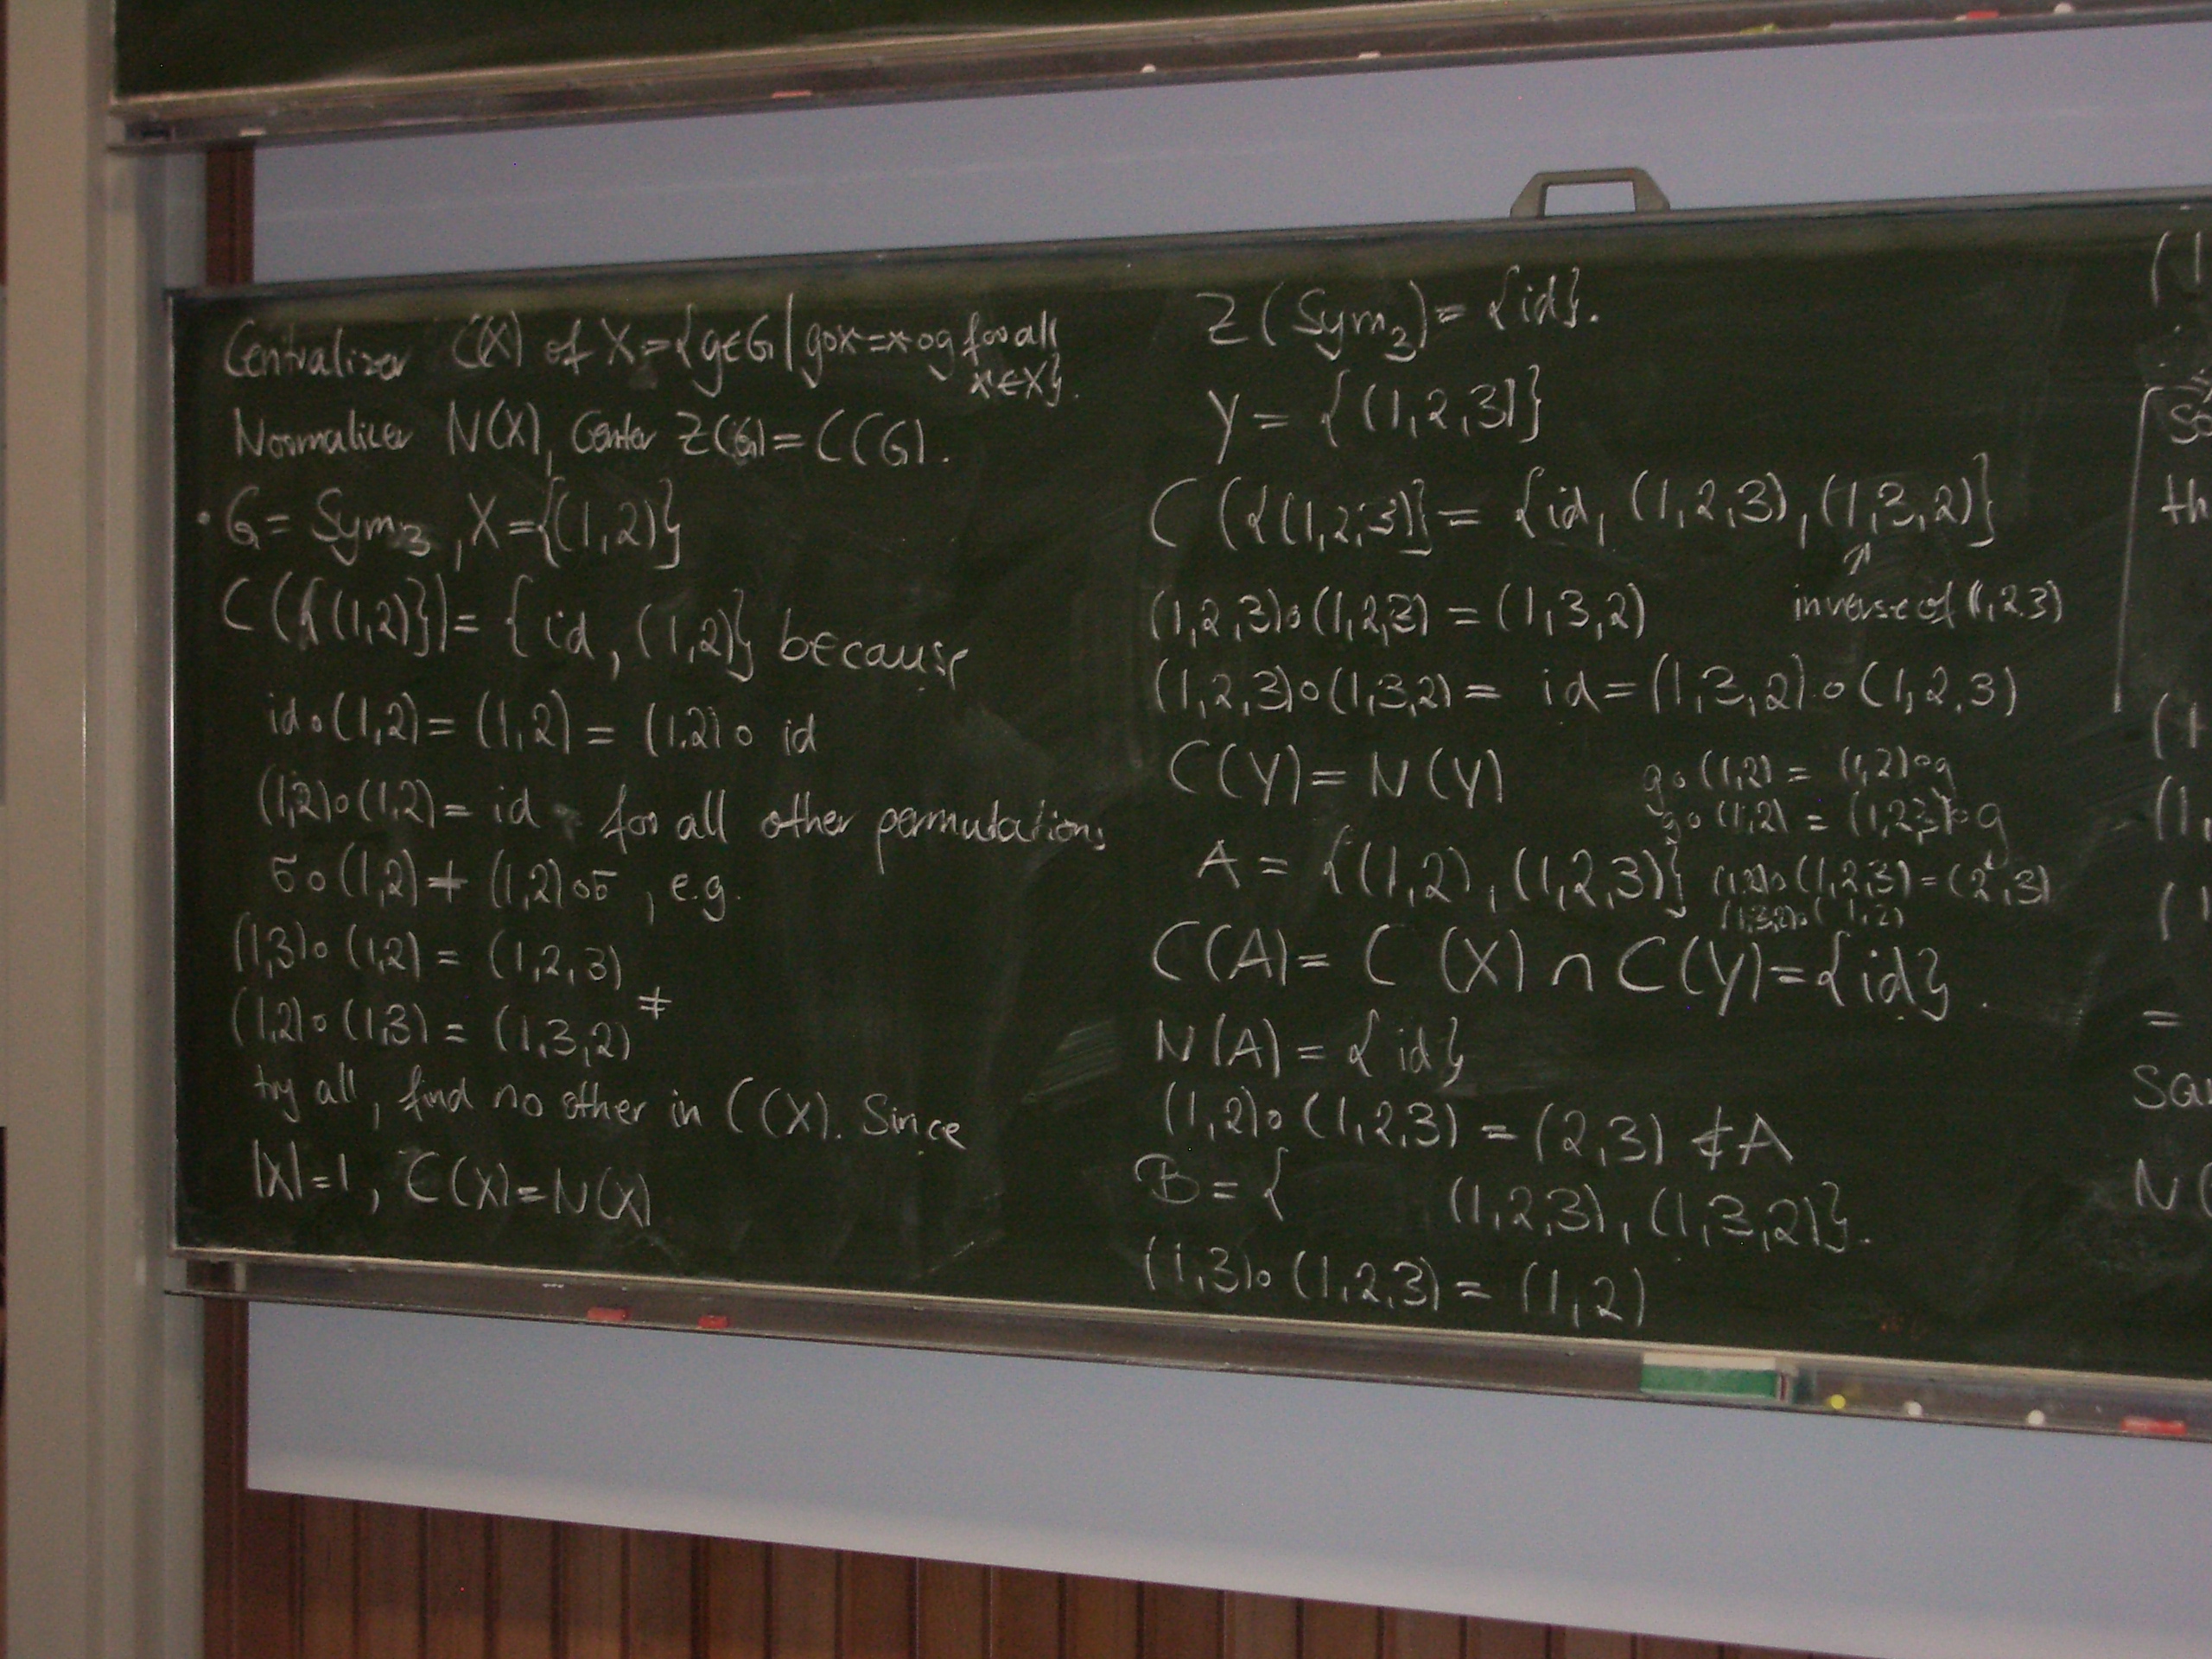 Centralizer C(X) of X = {g∈G | g∘x = x∘g for all
x∈X}.
Normalizer N(X), Center Z(G) = C(G).
• G = Sym₃, X = {(1,2)}
C({(1,2)}) = {id, (1,2)} because
id∘(1,2) = (1,2) = (1,2)∘ id
(1,2)∘(1,2) = id for all other permutations
σ∘(1,2) ≠ (1,2)∘σ, e.g.
(1,3)∘(1,2) = (1,2,3)
≠
(1,2)∘(1,3) = (1,3,2)
try all, find no other in C(X). Since
|X|=1, C(X)=N(X)
Z(Sym₃) = {id}.
Y = {(1,2,3)}
C({(1,2,3)} = {id, (1,2,3), (1,3,2)}
↑
inverse of (1,2,3)
(1,2,3)∘(1,2,3) = (1,3,2)
(1,2,3)∘(1,3,2) = id = (1,3,2)∘(1,2,3)
C(Y) = N(Y)
g∘(1,2) = (1,2)∘g
g∘(1,2) = (1,2,3)∘g
A = {(1,2), (1,2,3)}
(1,2)∘(1,2,3) = (2,3)
(1,3,2)∘(1,2)
C(A) = C(X) ∩ C(Y) = {id}.
N(A) = {id}
(1,2)∘(1,2,3) = (2,3) ∉ A
B = { (1,2,3), (1,3,2)}.
(1,3)∘(1,2,3) = (1,2)
(1
So
th
(1
(1,
(1
=
Sa
N(